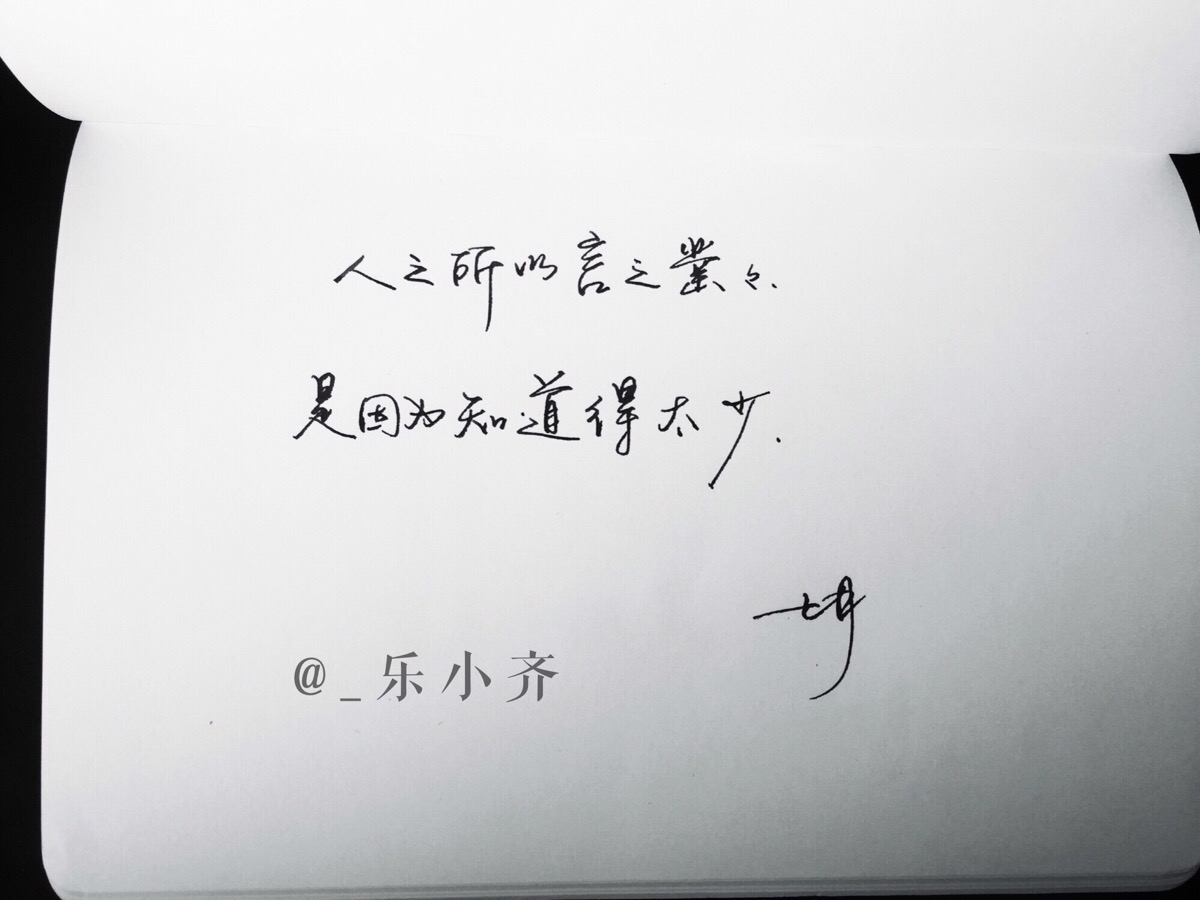 人之所以言之凿々.
是因为知道得太少.
@_乐小齐